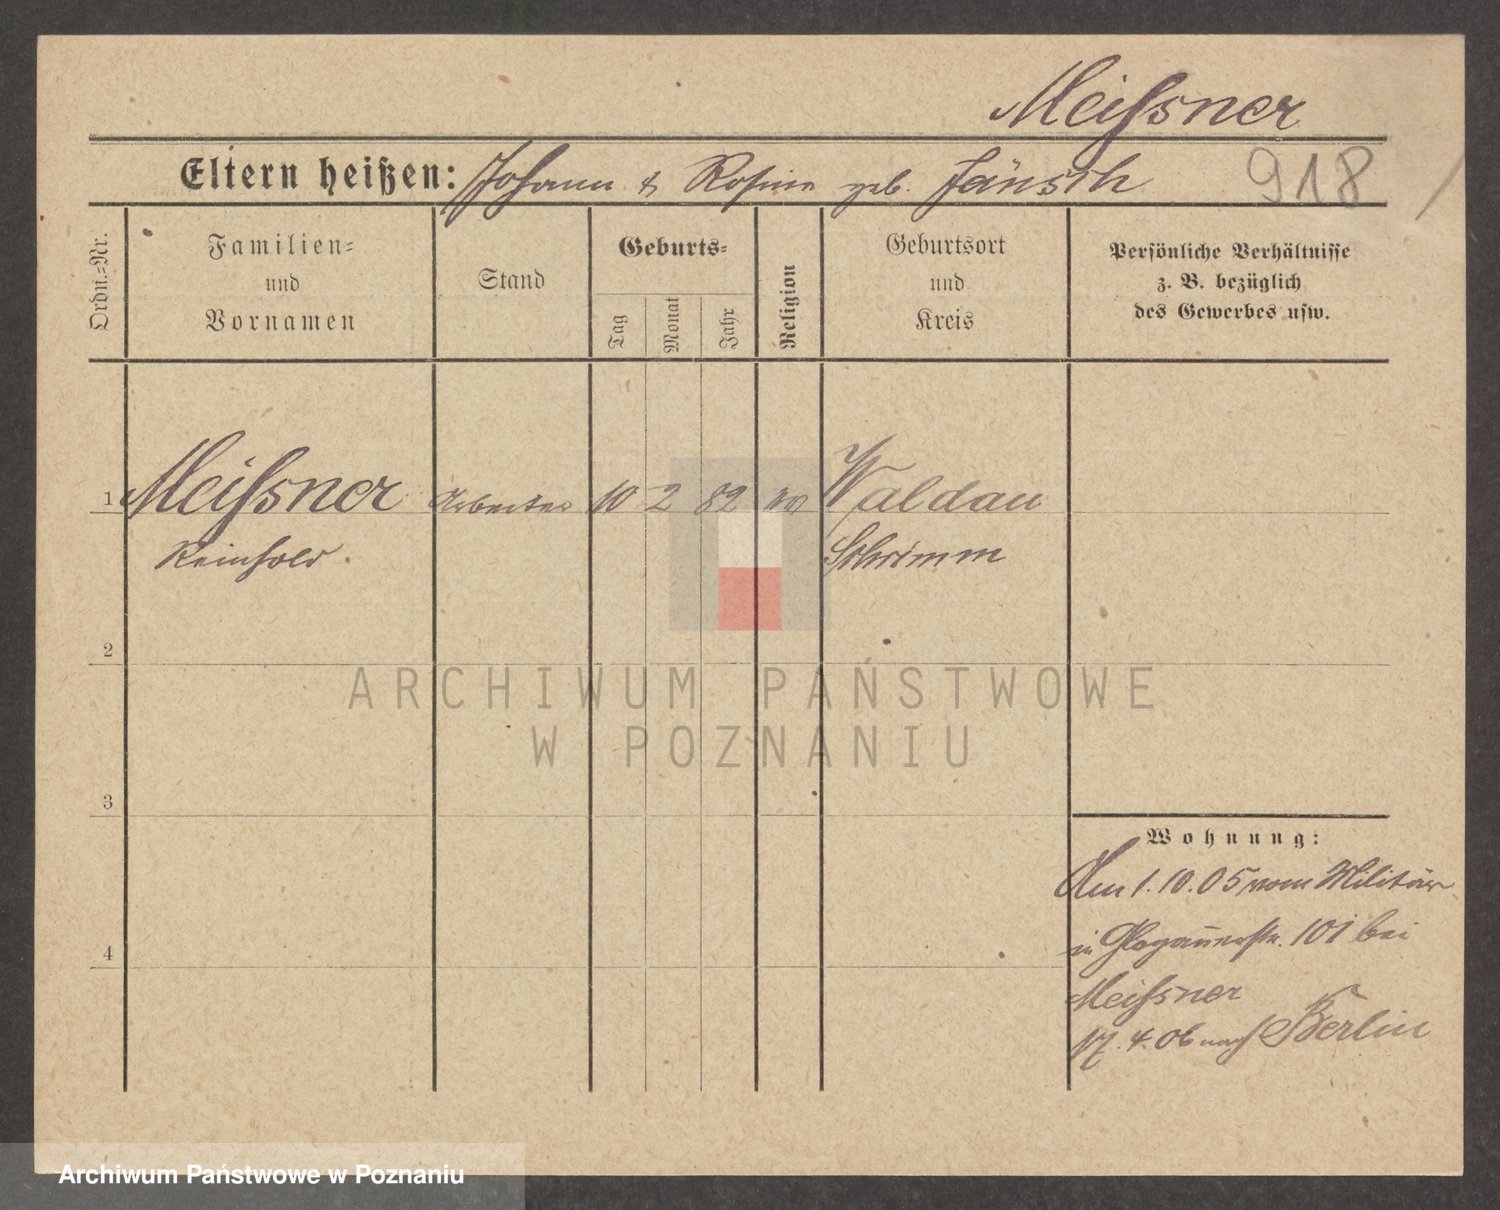 Meißner
Eltern heißen: Johann & Rosine geb. Jänsch 918
Ordn.-Nr.
Familien-
und
Vornamen
Stand
Geburts-
Tag
Monat
Jahr
Religion
Geburtsort
und
Kreis
Persönliche Verhältnisse
z. B. bezüglich
des Gewerbes usw.
1 Meißner Arbeiter 10 2 82 ev Waldau
Reinhold Schrimm
2
3
4
Wohnung:
Am 1.10.05 vom Militär
in Glogauerstr. 101 bei
Meißner
17.4.06 nach Berlin
ARCHIWUM PAŃSTWOWE
W POZNANIU
Archiwum Państwowe w Poznaniu